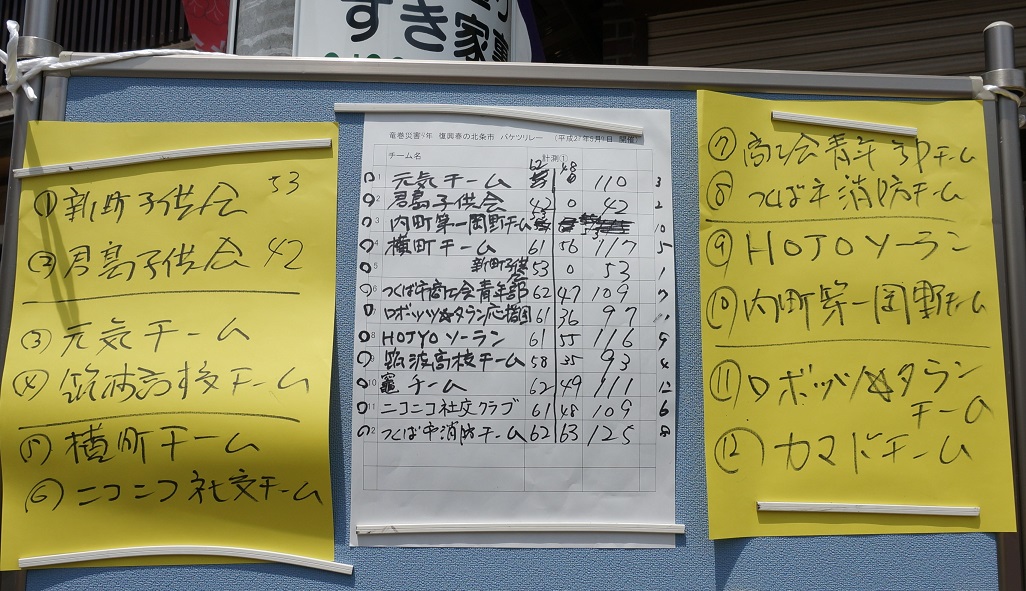 すき家
① 新町子供会 53
② 君島子供会 42
③ 元気チーム
④ 筑波高校チーム
⑤ 横町チーム
⑥ ニコニコ社交チーム
竜巻災害 年 復興春の北条市 バケツリレー （平成2 年5月 日 開催
チーム名 計測①
62 48
1 元気チーム 110 3
2 君島子供会 42 0 42 2
3 内町第一岡野チーム 10
4 横町チーム 61 56 117 5
5 新町子供会 53 0 53 1
6 つくば市商工会青年部 62 47 109 7
7 ロボッツ☆タラン応援団 61 36 97 11
8 HOJYOソーラン 61 55 116 9
9 筑波高校チーム 58 35 93 4
10 竈チーム 62 49 111 12
11 ニコニコ社交クラブ 61 48 109 6
12 つくば市消防チーム 62 63 125 8
⑦ 商工会青年部チーム
⑧ つくば市消防チーム
⑨ HOJOソーラン
⑩ 内町第一岡野チーム
⑪ ロボッツ☆タラン
チーム
⑫ カマドチーム